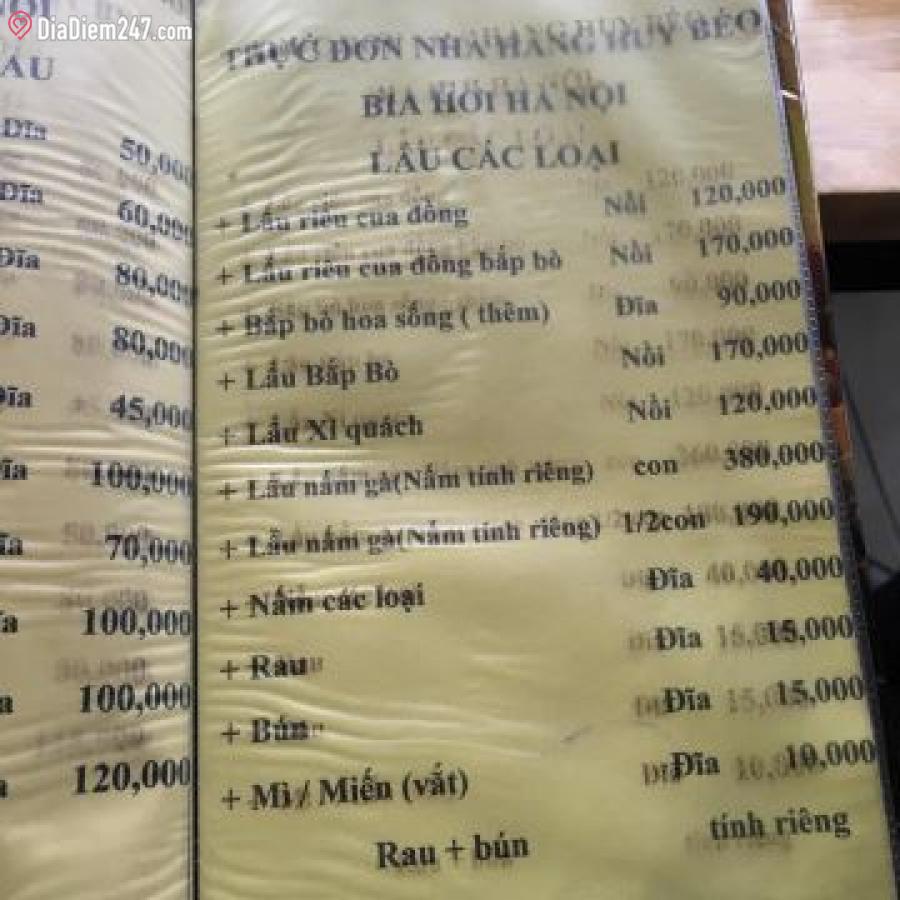 DiaDiem247.com
NỘI
ẦU
Đĩa 50,000
Đĩa 60,000
Đĩa 80,000
Đĩa 80,000
Đĩa 45,000
Đĩa 100,000
Đĩa 70,000
100,000
100,000
120,000
THỰC ĐƠN NHÀ HÀNG HUY BÉO
BIA HƠI HÀ NỘI
LẨU CÁC LOẠI
+ Lẩu riêu cua đồng Nồi 120,000
+ Lẩu riêu cua đồng bắp bò Nồi 170,000
+ Bắp bò hoa sống ( thêm) Đĩa 90,000
+ Lẩu Bắp Bò Nồi 170,000
+ Lẩu Xí quách Nồi 120,000
+ Lẩu nấm gà(Nấm tính riêng) con 380,000
+ Lẩu nấm gà(Nấm tính riêng) 1/2con 190,000
+ Nấm các loại Đĩa 40,000
+ Rau Đĩa 15,000
+ Bún Đĩa 15,000
+ Mì / Miến (vắt) Đĩa 10,000
Rau + bún tính riêng